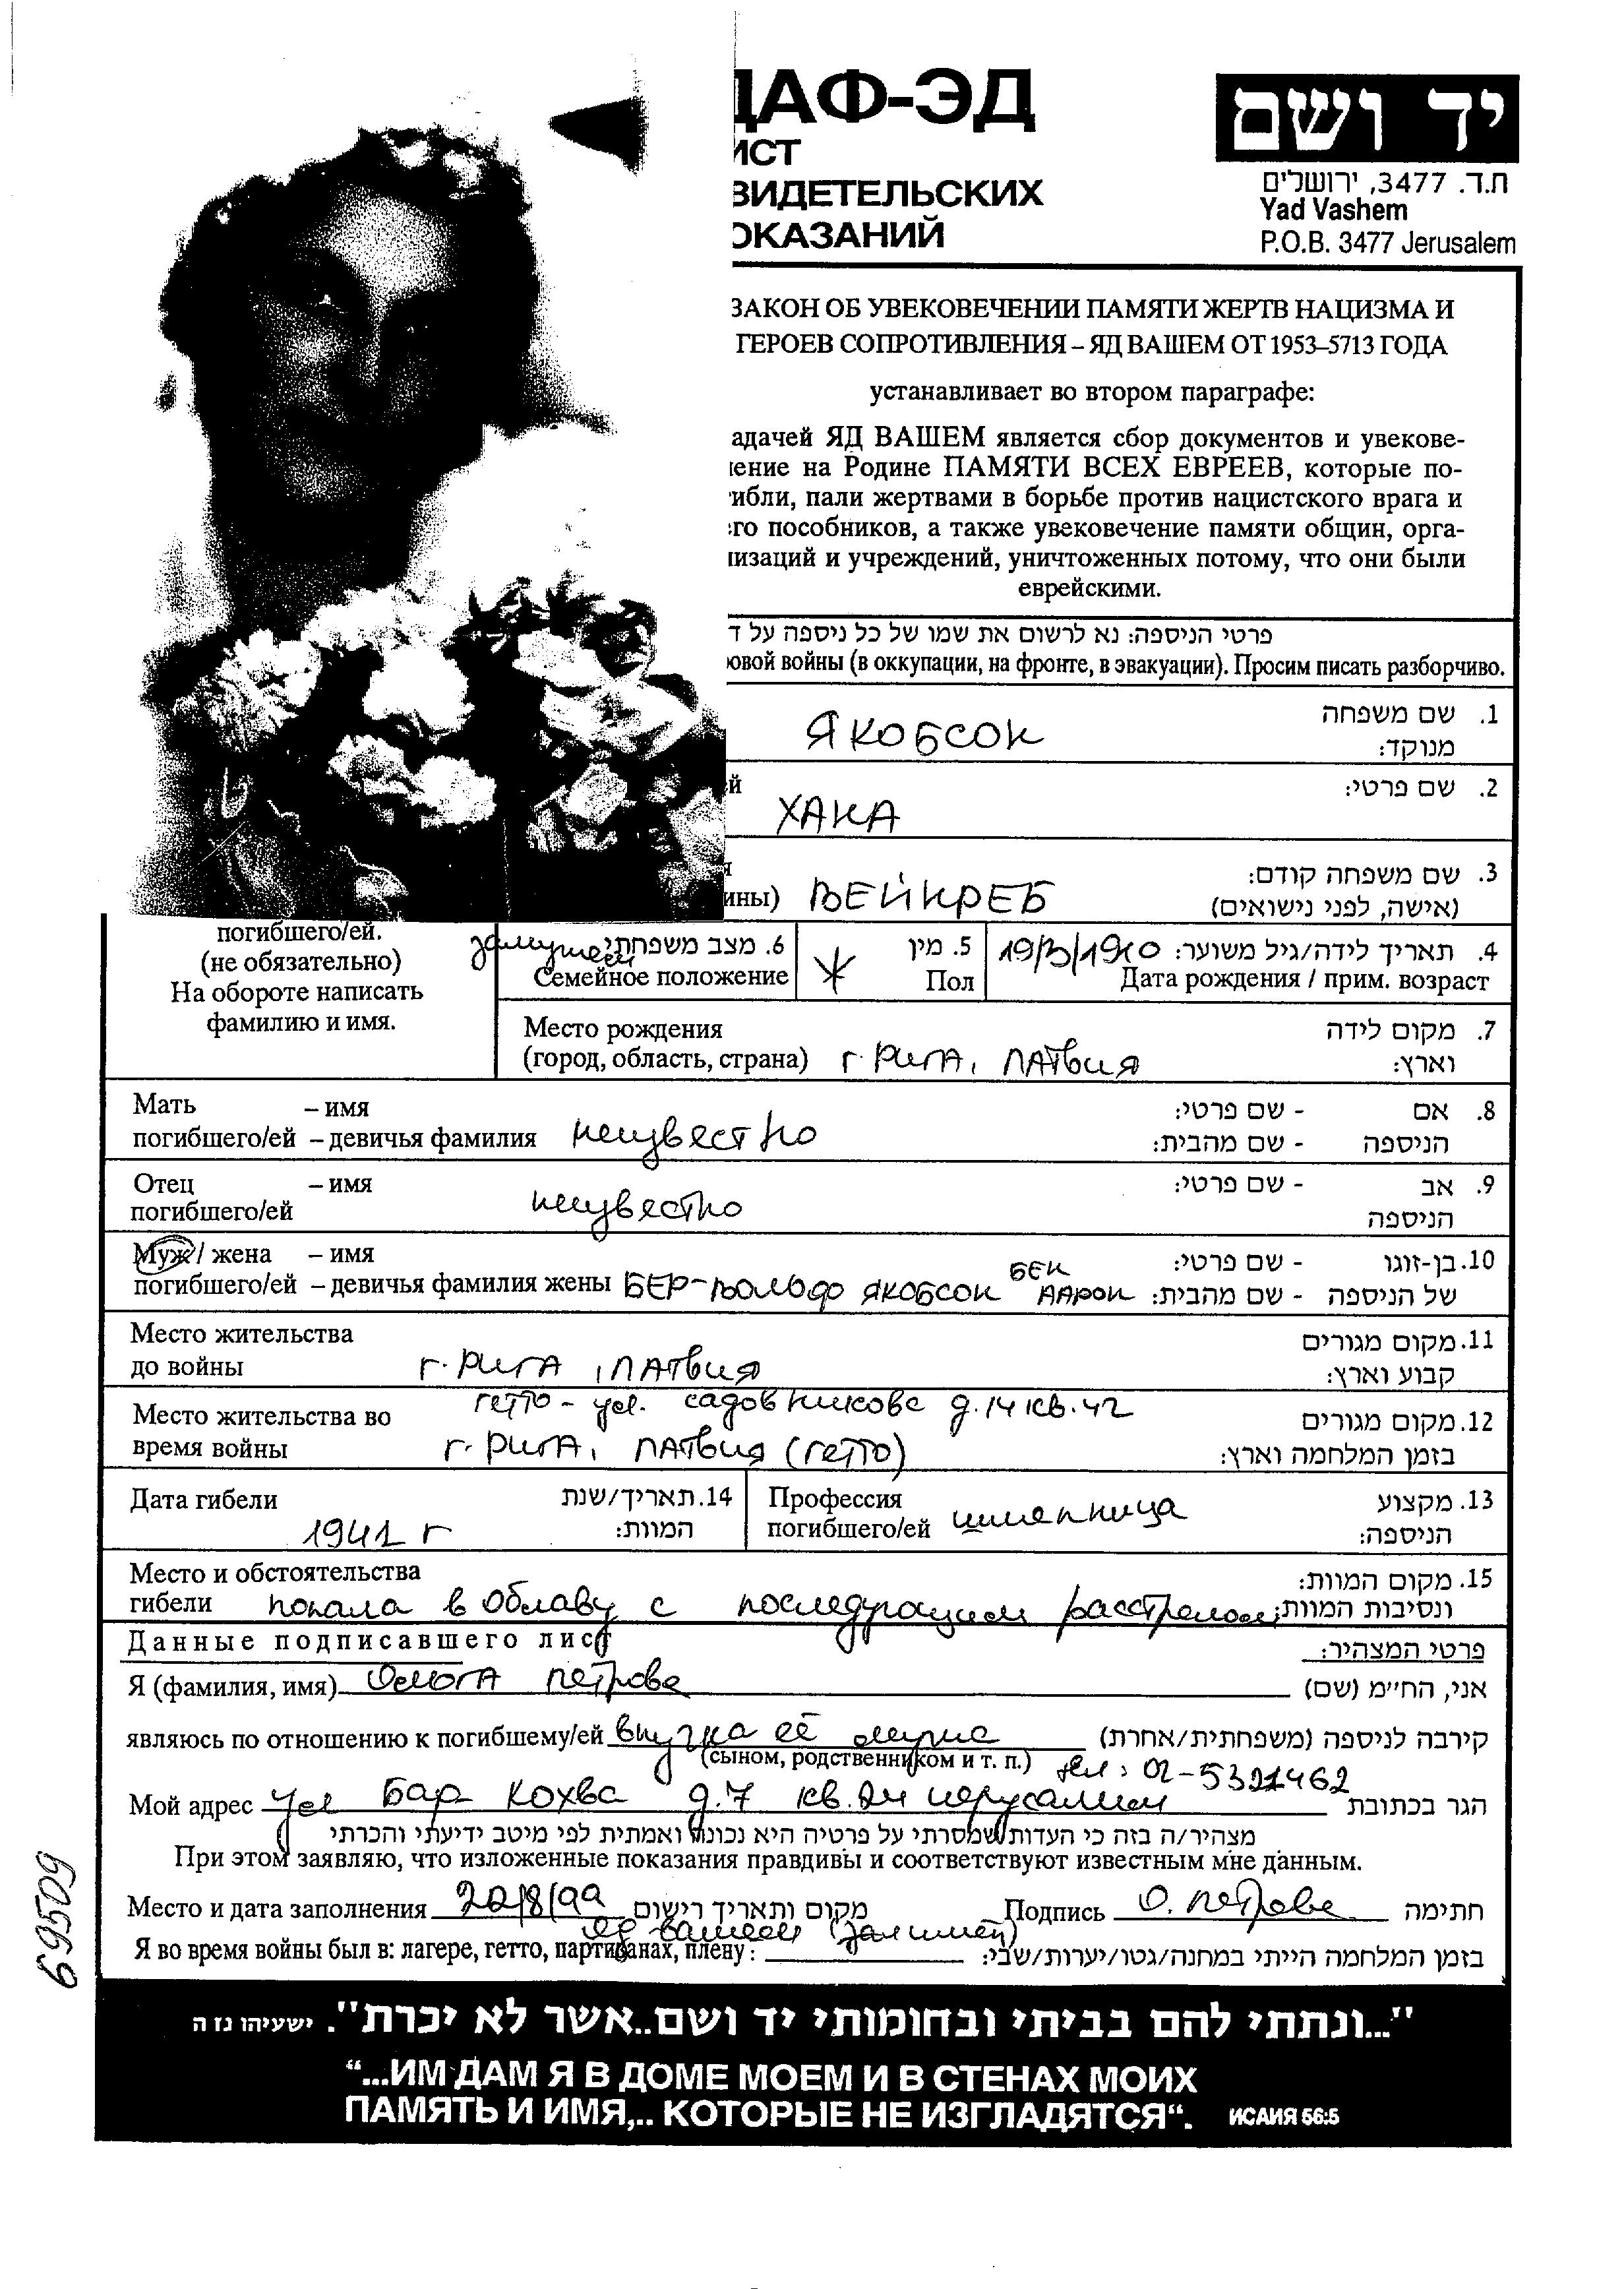 ДАФ-ЭД
ИСТ
ВИДЕТЕЛЬСКИХ
ОКАЗАНИЙ
יד ושם
ת.ד. 3477, ירושלים
Yad Vashem
P.O.B. 3477 Jerusalem
ЗАКОН ОБ УВЕКОВЕЧЕНИИ ПАМЯТИ ЖЕРТВ НАЦИЗМА И
ГЕРОЕВ СОПРОТИВЛЕНИЯ – ЯД ВАШЕМ ОТ 1953–5713 ГОДА
устанавливает во втором параграфе:
адачей ЯД ВАШЕМ является сбор документов и увекове-
чение на Родине ПАМЯТИ ВСЕХ ЕВРЕЕВ, которые по-
гибли, пали жертвами в борьбе против нацистского врага и
его пособников, а также увековечение памяти общин, орга-
низаций и учреждений, уничтоженных потому, что они были
еврейскими.
פרטי הניספה: נא לרשום את שמו של כל ניספה על ד
ровой войны (в оккупации, на фронте, в эвакуации). Просим писать разборчиво.
1. שם משפחה
מנוקד:
ЯКОБСОН
2. שם פרטי:
й
ХАНА
3. שם משפחה קודם:
(אישה, לפני נישואים)
ины) ВЕЙНРЕБ
погибшего/ей.
(не обязательно)
На обороте написать
фамилию и имя.
4. תאריך לידה/גיל משוער: 19/3/1910
Дата рождения / прим. возраст
5. מין
Пол Ж
6. מצב משפחתי
Семейное положение замужем
7. מקום לידה
וארץ:
Место рождения
(город, область, страна) г. РИГА, ЛАТВИЯ
Мать – имя 8. אם - שם פרטי:
погибшего/ей – девичья фамилия неизвестно הניספה - שם מהבית:
Отец – имя 9. אב - שם פרטי:
погибшего/ей неизвестно הניספה
Муж / жена – имя 10. בן-זוגו - שם פרטי:
погибшего/ей – девичья фамилия жены БЕР-ВОЛЬФ ЯКОБСОН БЕН ААРОН של הניספה - שם מהבית:
Место жительства 11. מקום מגורים
до войны г. РИГА, ЛАТВИЯ קבוע וארץ:
гетто - ул. Садовникова д. 14 кв. 42
Место жительства во 12. מקום מגורים
время войны г. РИГА, ЛАТВИЯ (гетто) בזמן המלחמה וארץ:
Дата гибели 14. תאריך/שנת
1941 г המוות:
Профессия 13. מקצוע
погибшего/ей шляпница הניספה:
Место и обстоятельства 15. מקום המוות:
гибели попала в облаву с последующим расстрелом ונסיבות המוות:
Данные подписавшего лист פרטי המצהיר:
Я (фамилия, имя) Ольга Петрова אני, הח״מ (שם)
являюсь по отношению к погибшему/ей внучка её мужа קירבה לניספה (משפחתית/אחרת)
(сыном, родственником и т. п.) тел: 02-5321462
Мой адрес ул Бар Кохва д. 7 кв. 24 Иерусалим הגר בכתובת
מצהיר/ה בזה כי העדות שמסרתי על פרטיה היא נכונה ואמתית לפי מיטב ידיעתי והכרתי
При этом заявляю, что изложенные показания правдивы и соответствуют известным мне данным.
Место и дата заполнения 22/8/99 מקום ותאריך רישום Подпись О. Петрова חתימה
Яд Вашем
Я во время войны был в: лагере, гетто, партизанах, плену: בזמן המלחמה הייתי במחנה/גטו/יערות/שבי:
69509
"...ונתתי להם בביתי ובחומותי יד ושם..אשר לא יכרת". ישעיהו נז ה
“...ИМ ДАМ Я В ДОМЕ МОЕМ И В СТЕНАХ МОИХ
ПАМЯТЬ И ИМЯ,.. КОТОРЫЕ НЕ ИЗГЛАДЯТСЯ“. ИСАИЯ 56:5